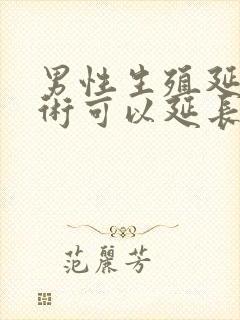 男性生殖延
術可以延長
范麗芳